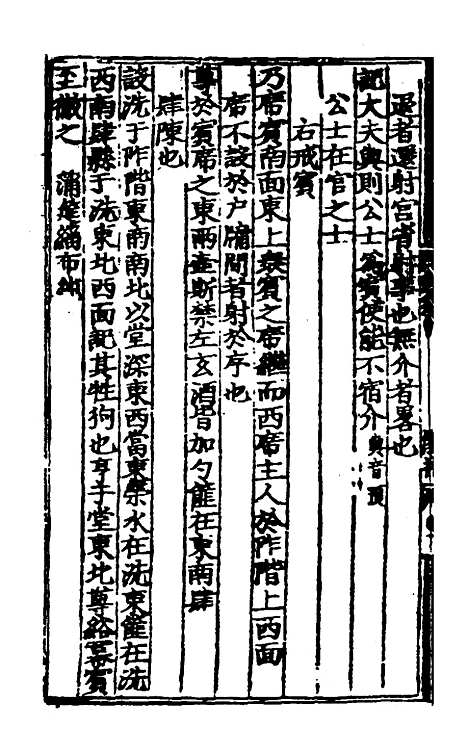 退者還射宮省射事也無介者畧也
記大夫與則公士為賓使能不宿介與音預
公士在官之士
右戒賓
乃席賓南面東上衆賓之席繼而西席主人於阼階上西面
席不設於户牖間者射於序也
尊於賓席之東兩壺斯禁左玄酒皆加勺篚在東南肆
肆陳也
設洗于阼階東南南北以堂深東西當東榮水在洗東篚在洗
西南肆縣于洗東北西面記其牲狗也亨于堂東北尊綌冪賓
至徹之蒲筵緇布純